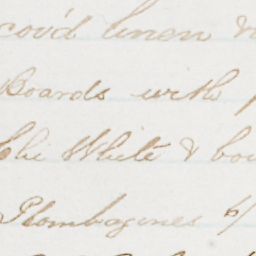 cov'd linen &
Boards with
White & bou
Plombagines 6/